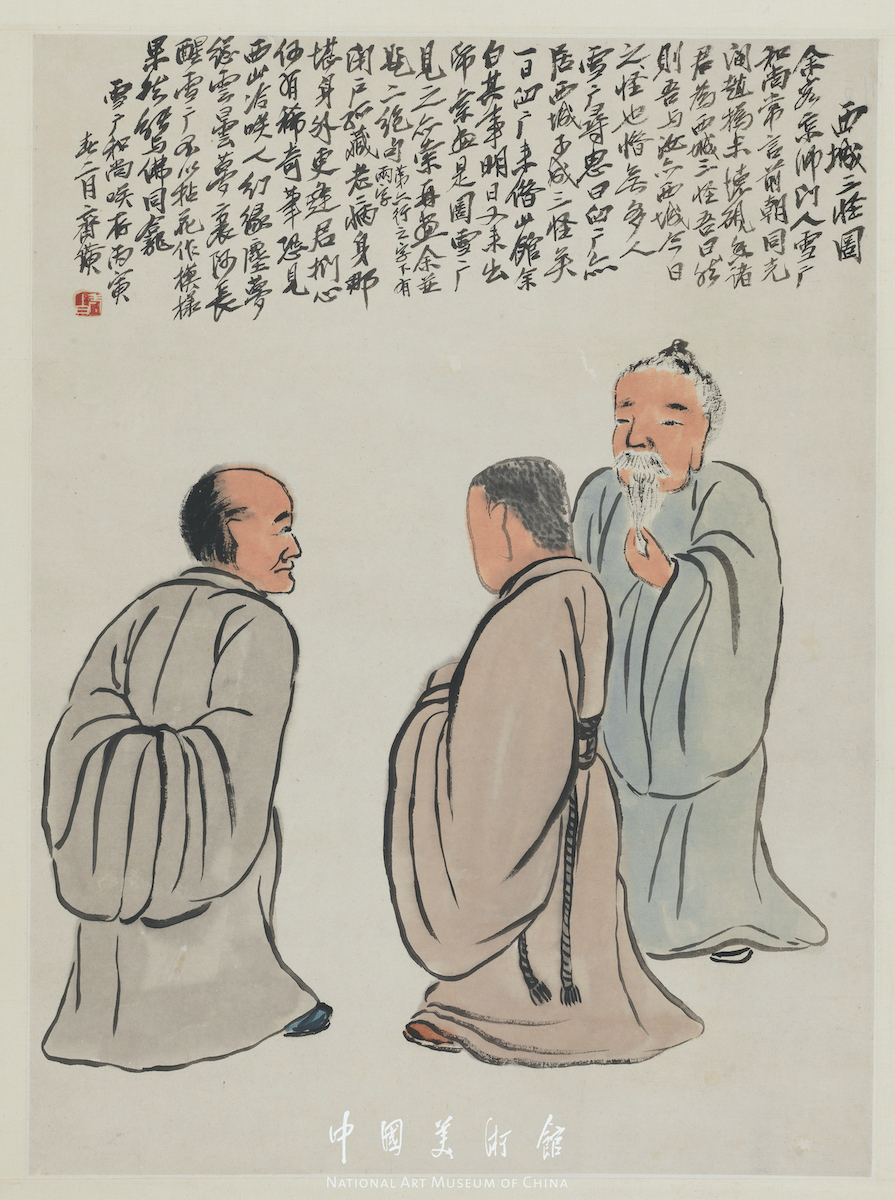 西城三怪圖
余客京師門人雪广
和尚常言前朝同光
間趙撝叔懷硯香諸
君為西城三怪吾曰然
則吾与汝亦西城今日
之怪也惜無多人
雪广尋思曰臼广亦
居西城可成三怪矣
一日臼广來借山館余
白其事明日又來出
帋索畫是圖雪广
見之亦索再畫余並
題二絕句
行之字下有
兩字
閉戶孤藏老病身那
堪身外更逢君捫心
何有稀奇筆恐見
西山冷咲人幻緣塵夢
總雲曇夢裏阿長
醒雪广不以拈花作模樣
果然能与佛同龕
雪广和尚咲存丙寅
春二月齊璜
中國美術館
NATIONAL ART MUSEUM OF CHINA